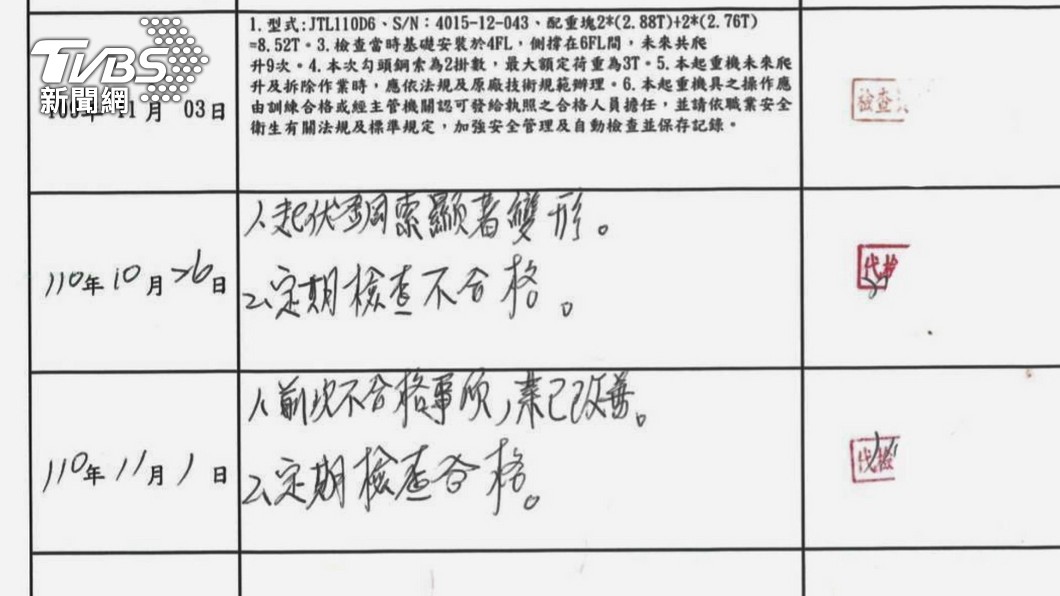 TVBS
新聞網
1. 型式:JTL110D6、S/N：4015-12-043、配重塊2*(2.88T)+2*(2.76T)
=8.52T。3.檢查當時基礎安裝於4FL，側撐在6FL間，未來共爬
升9次。4.本次勾頭鋼索為2掛數，最大額定荷重為3T。5.本起重機未來爬
升及拆除作業時，應依法規及原廠技術規範辦理。6.本起重機具之操作應
由訓練合格或經主管機關認可發給執照之合格人員擔任，並請依職業安全
衛生有關法規及標準規定，加強安全管理及自動檢查並保存記錄。
年 11 月 03 日
檢查
110年10月26日
1、起伏鋼索顯著變形。
2、定期檢查不合格。
代檢
110年11月1日
1、前次不合格事項，業已改善。
2、定期檢查合格。
代檢